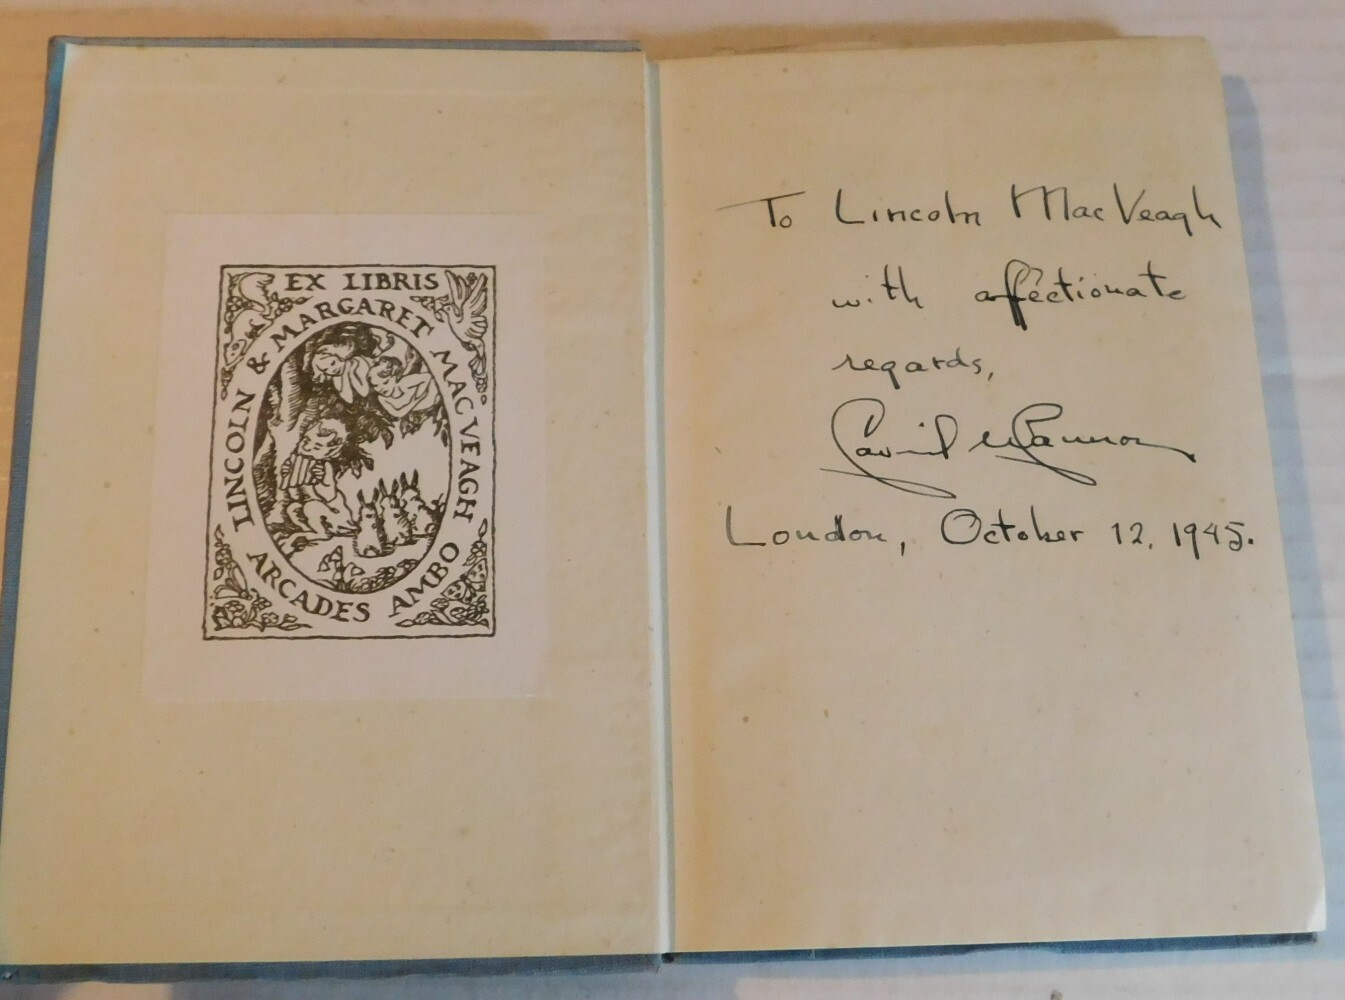 EX LIBRIS
LINCOLN & MARGARET MACVEAGH
ARCADES AMBO
To Lincoln MacVeagh
with affectionate
regards,
London, October 12, 1945.